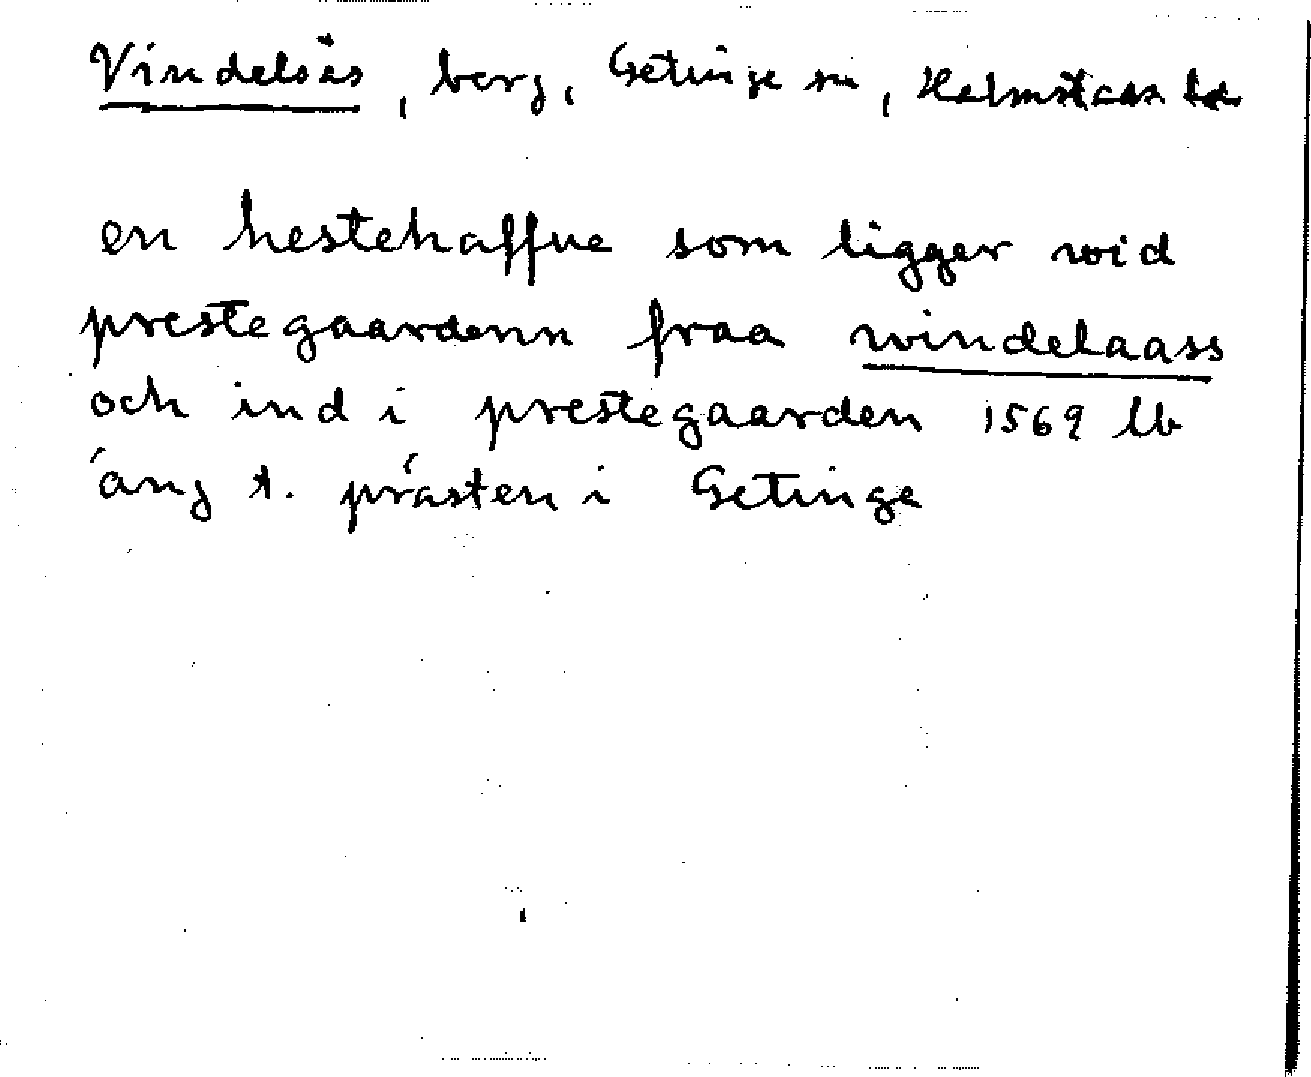 Vindelsås, berg, Getinge sn, Halmstads hd
en hestehaffue som ligger wid
prestegaardenn fraa windelaass
och ind i prestegaarden 1569 lb
äng t. prästen i Getinge